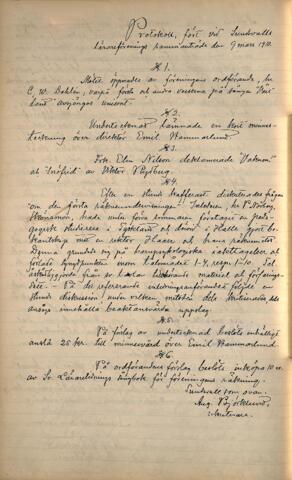 Protokoll, fört vid Sundsvalls
lärareförenings sammanträde den 9 mars 1910.
§ 1.
Mötet öppnades af föreningens ordförande, hr
C. W. Dahlén, varpå första och andra verserna på sången "Vårt
land" avsjöngos unisont.
§ 2.
Undertecknad lämnade en kort minnes-
teckning över direktör Emil Hammarlund.
§ 3.
Frk. Elin Nilson deklamerade "Vaknen"
och "Snöfrid" av Viktor Rydberg.
§ 4.
Efter en stunds kafferast diskuterades frågan
om de första räkneundervisningen. Inledaren, hr
hade under förra sommaren företagit en peda-
gogisk studieresa i Tyskland och därvid i Halle gjort be-
kantskap med en rektor och hans räknemetod.
Denna grundade sig på iakttagelser att
inom talområdet 1-4, resp. 1-10.
materiel att
 - På det refererande inledningsanförandet följde en
stunds diskussion, under vilken metoden dels
ansågs innehålla beaktansvärda uppslag.
§ 5.
På förslag av undertecknad beslöts enhälligt
anslå 25 kr. till minnesvård över Emil Hammarlund.
§ 6.
På ordförandens förslag beslöts inköpa 10 ex.
av Sv. Läraretidnings sångbok för föreningens räkning.
Sundsvall som ovan.
Aug. Björklund,
sekreterare.